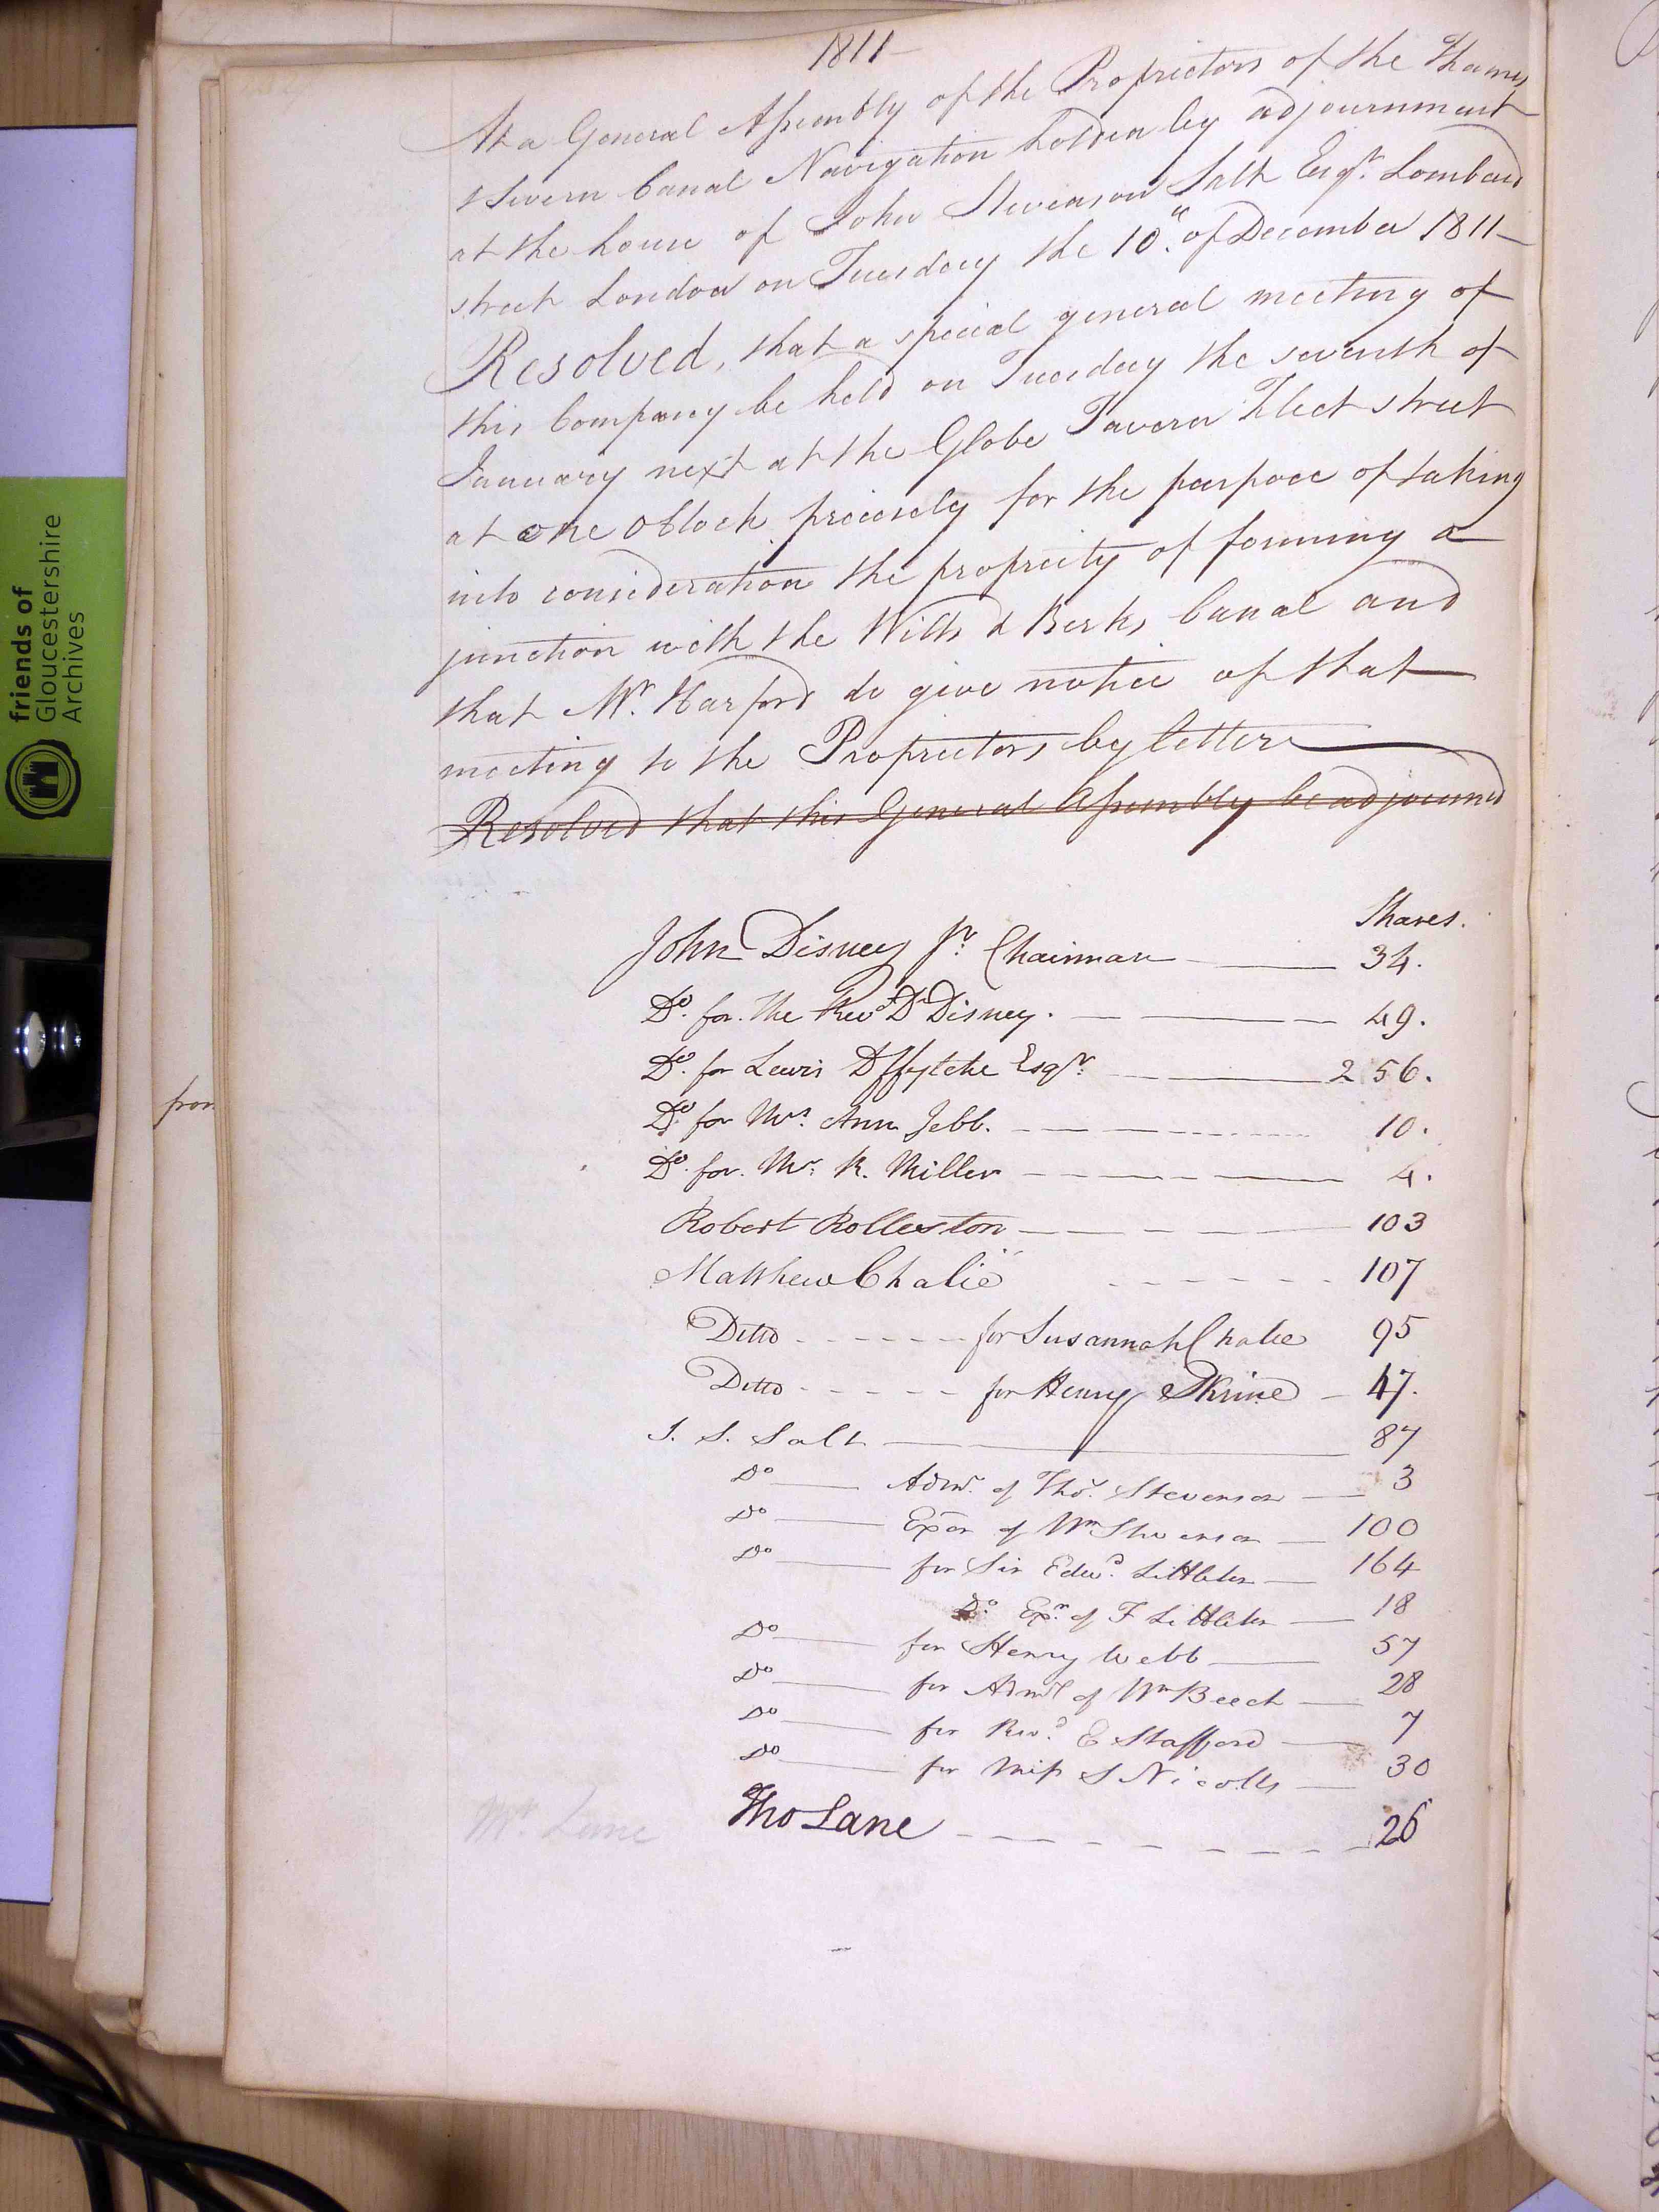 1811
At a General Assembly of the Proprietors of the Thames
& Severn Canal Navigation holden by adjournment
at the house of John Stevenson Salt Esqr. Lombard
street London on Tuesday the 10th. of December 1811
Resolved, that a special general meeting of
this Company be held on Tuesday the seventh of
January next at the Globe Tavern Fleet street
at one oClock precisely for the purpose of taking
into consideration the propriety of forming a
junction with the Wilts & Berks Canal and
that Mr. Harford do give notice of that
meeting to the Proprietors by letter
Resolved that this General Assembly be adjourned
Shares.
John Disney Jr. Chairman 34.
Do. for the Revd. Dr Disney. 49.
Do. for Lewis Dffytche Esqr. 256.
Do. for Mrs. Ann Jebb. 10.
Do. for Mr. R. Miller 4.
Robert Rolleston 103
Matthew Chalié 107
Ditto for Susannah Chalie 95
Ditto for Henry Skrine 47.
J. S. Salt 87
Do Admr. of Thos. Stevenson 3
Do Exor of Wm Stevenson 100
Do for Sir Edwd. Littleton 164
Do. Exr. of F Littleton 18
Do for Henry Webb 57
Do for Admx of Wm Beech 28
Do for Revd. E Stafford 7
Do for Miss S Nicolls 30
Mr. Lane
Tho Lane 26
from
friends of
Gloucestershire
Archives